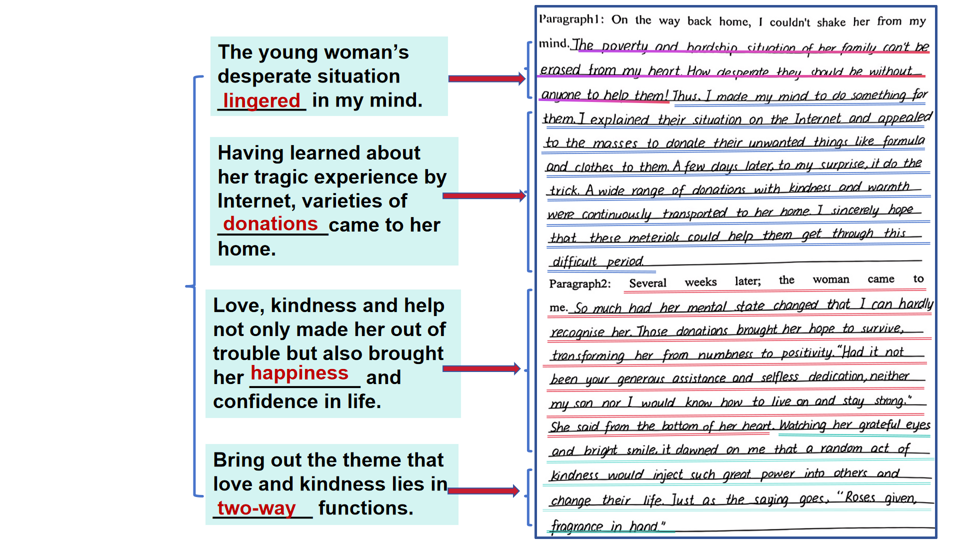 The young woman's
desperate situation
lingered in my mind.
Having learned about
her tragic experience by
Internet, varieties of
donations came to her
home.
Love, kindness and help
not only made her out of
trouble but also brought
her happiness and
confidence in life.
Bring out the theme that
love and kindness lies in
two-way functions.
Paragraph1: On the way back home, I couldn't shake her from my
mind. The poverty and hardship situation of her family can't be
erased from my heart. How desperate they should be without
anyone to help them! Thus, I made my mind to do something for
them. I explained their situation on the Internet and appealed
to the masses to donate their unwanted things like formula
and clothes to them. A few days later, to my surprise, it do the
trick. A wide range of donations with kindness and warmth
were continuously transported to her home. I sincerely hope
that these meterials could help them get through this
difficult period.
Paragraph2: Several weeks later; the woman came to
me. So much had her mental state changed that I can hardly
recognise her. Those donations brought her hope to survive,
transforming her from numbness to positivity. "Had it not
been your generous assistance and selfless dedication, neither
my son nor I would know how to live on and stay strong."
She said from the bottom of her heart. Watching her grateful eyes
and bright smile, it dawned on me that a random act of
kindness would inject such great power into others and
change their life. Just as the saying goes, "Roses given,
fragrance in hand."